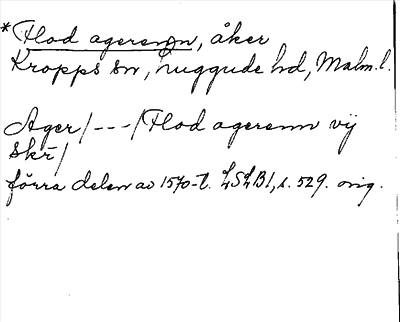 *Flod agerenn, åker
Kropps sn, Luggude hd, Malm.l.
Ager/---/Flod agerenn vij
skr/
förra delen av 1570-t. LSLB1, s. 529. orig.